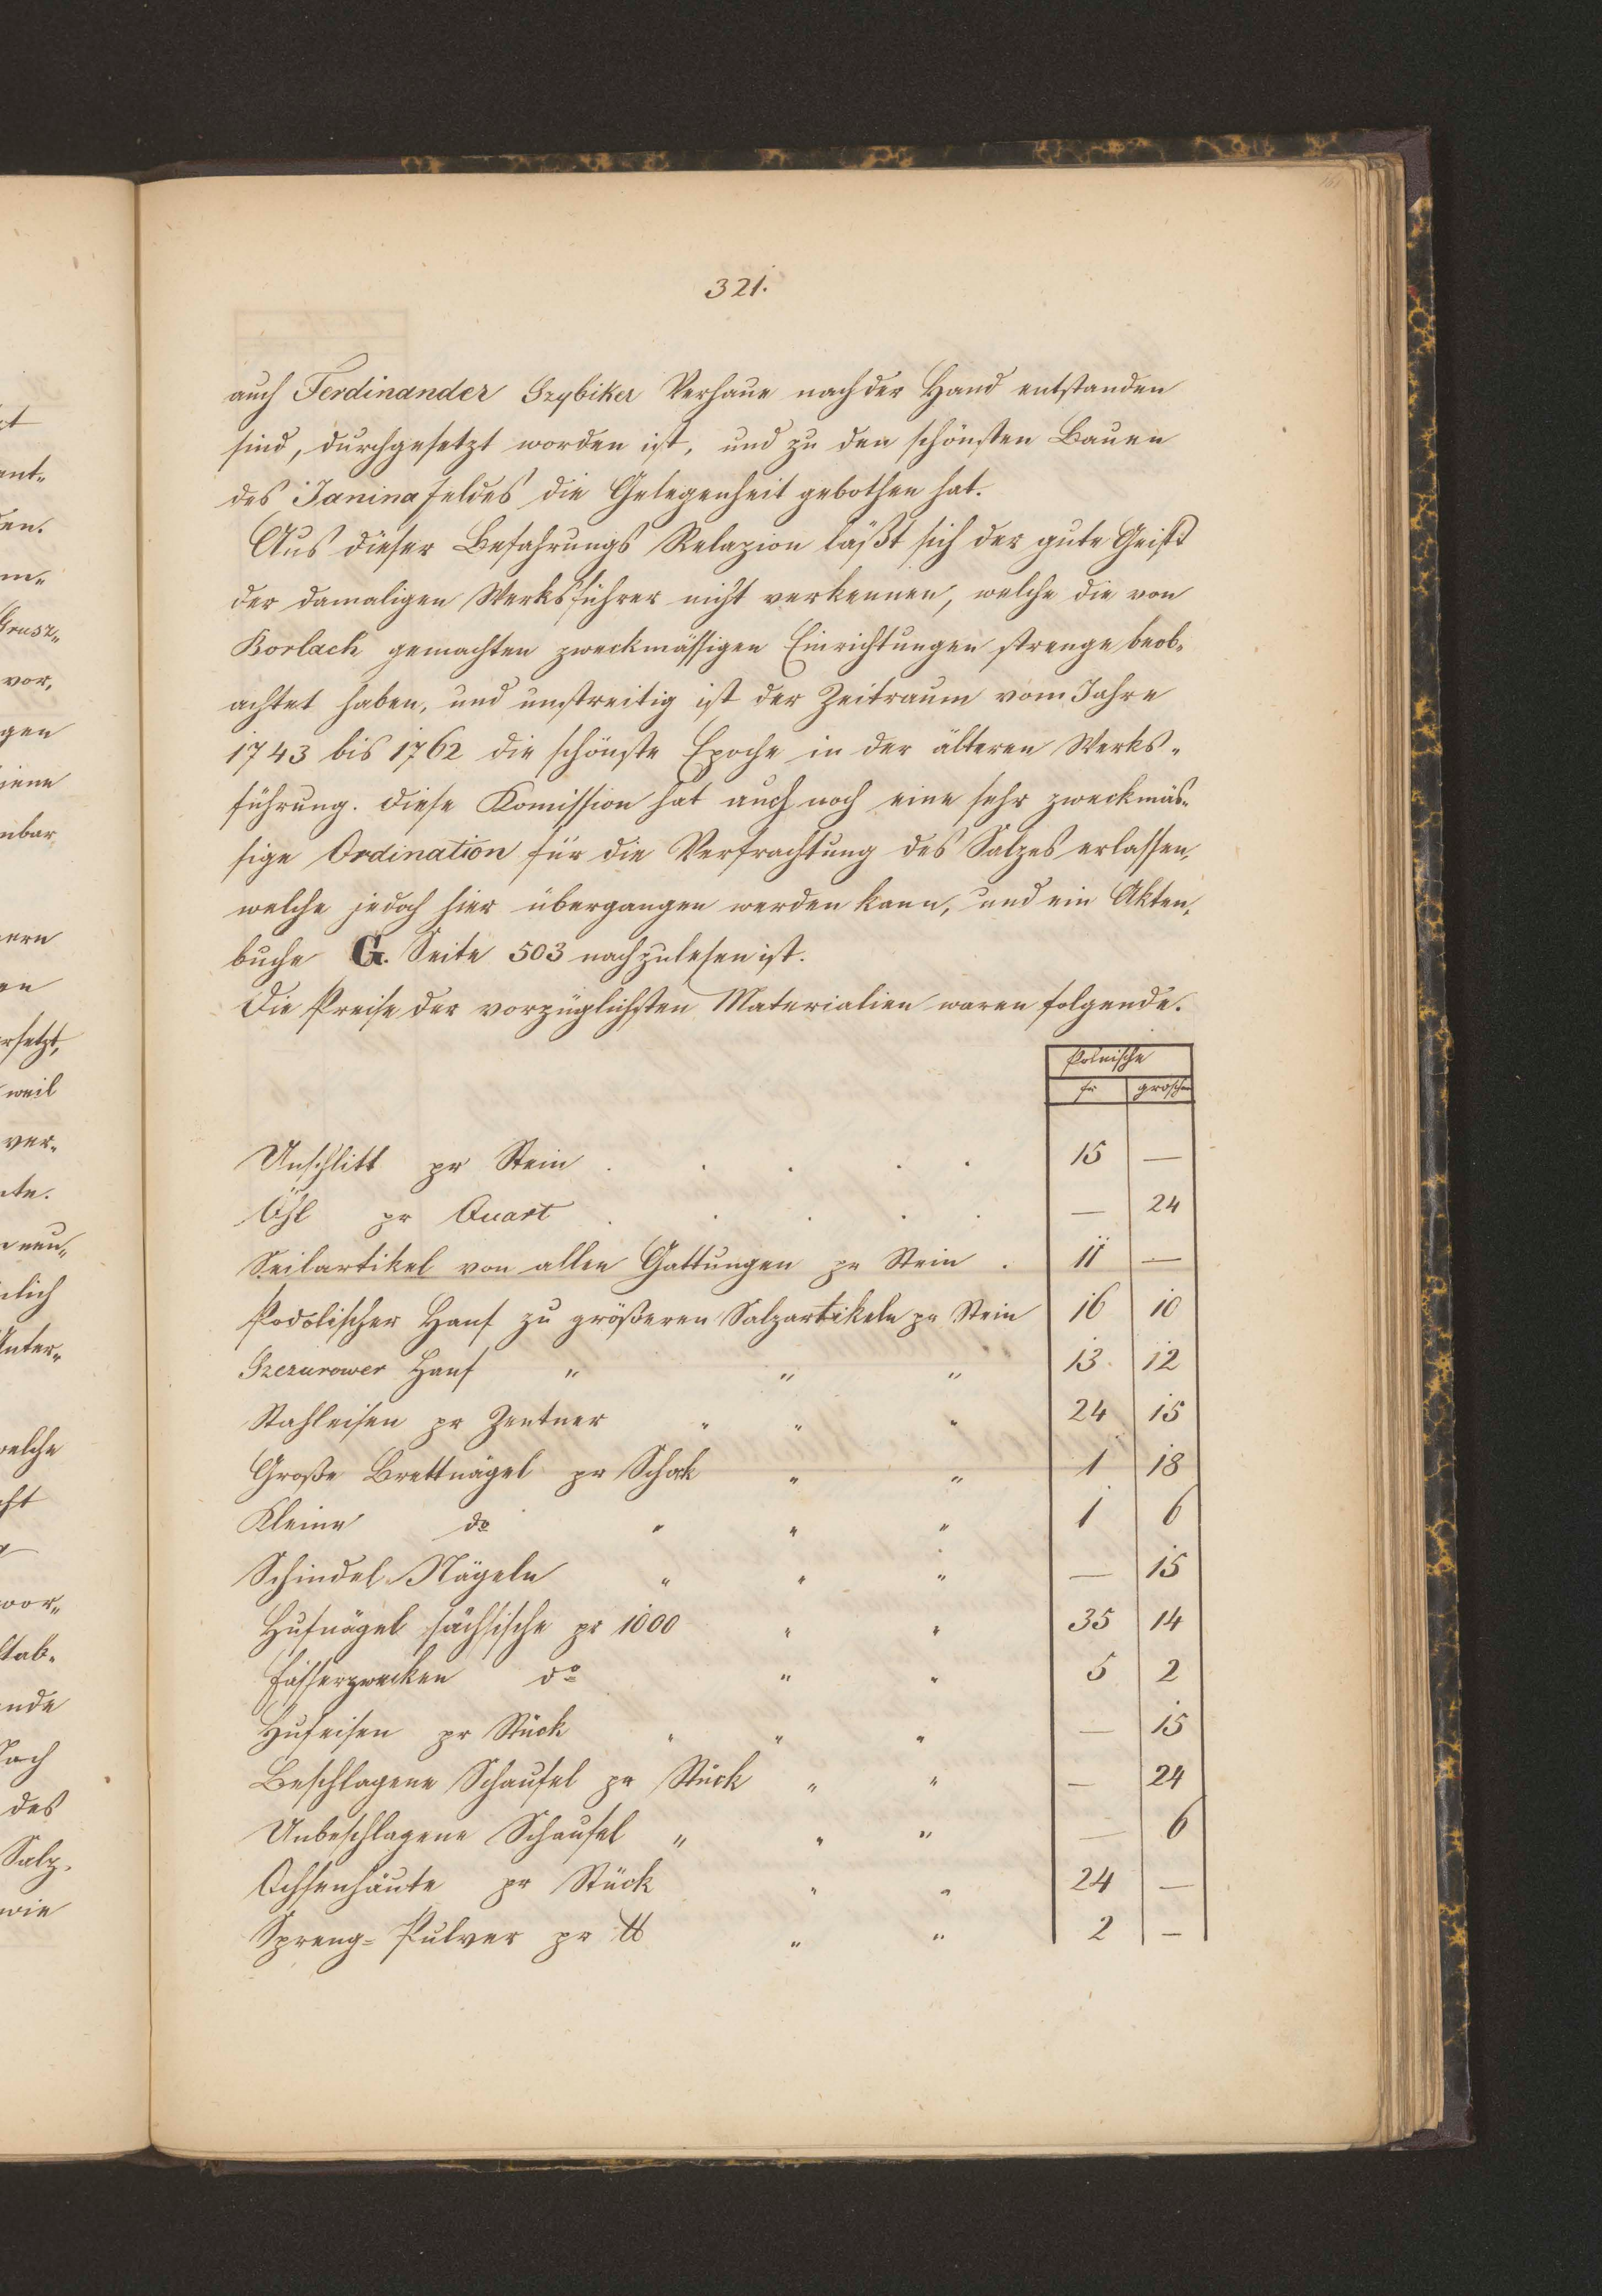 321.
auch Ferdinander Grzybiker Verhaue nach der Hand entstanden
sind, durchgesetzt worden ist, und zu den schönsten Bauen
des Janina feldes die Gelegenheit gebothen hat.
Aus dieser Befahrungs Relazion läßt sich der gute Geist
der damaligen Werksführer nicht verkennen, welche die von
Borlach gemachten zweckmässigen Einrichtungen strenge beob-
achtet haben, und unstreitig ist der Zeitraum vom Jahre
1743 bis 1762 die schönste Epoche in der älteren Werks-
führung. Diese Komission hat auch noch eine sehr zweckmäs-
sige Ordination für die Verfrachtung des Salzes erlassen,
welche jedoch hier übergangen werden kann, und ein Akten,
buche G. Seite 503 nachzulesen ist.
Die Preise der vorzüglichsten Materialien waren folgende.
Polnische
fr groschen
Unschlitt pr Stein . . . . . 15 —
Öhl pr Quart . . . . . — 24
Seilartikel von allen Gattungen pr Stein . 11 —
Podolischer Hanf zu größeren Salzartikeln pr Stein 16 10
Hanf " " " 13 12
Stahleisen pr Zentner " " " 24 15
Große Brettnägel pr Schok " " 1 18
Kleine do " " " 1 6
Schindel-Nägeln " " " — 15
Hufnägel sächsische pr 1000 " " 35 14
Fässerzwecken do " " 5 2
Hufeisen pr Stück " " " — 15
Beschlagene Schaufel pr Stück " " — 24
Unbeschlagene Schaufel " " " — 6
Ochsenhäute pr Stück " " 24 —
Spreng-Pulver pr ℔ " " 2 —